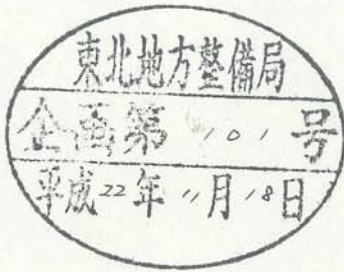 東北地方整備局
企画第101号
平成22年11月18日